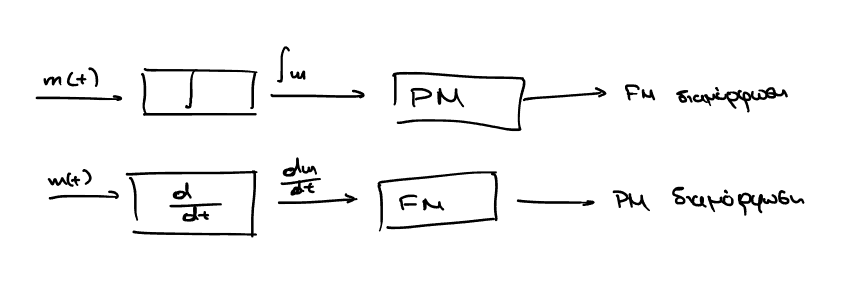 m(t) ∫ ∫m PM FM διαμόρφωση
m(t) d/dt dm/dt FM PM διαμόρφωση